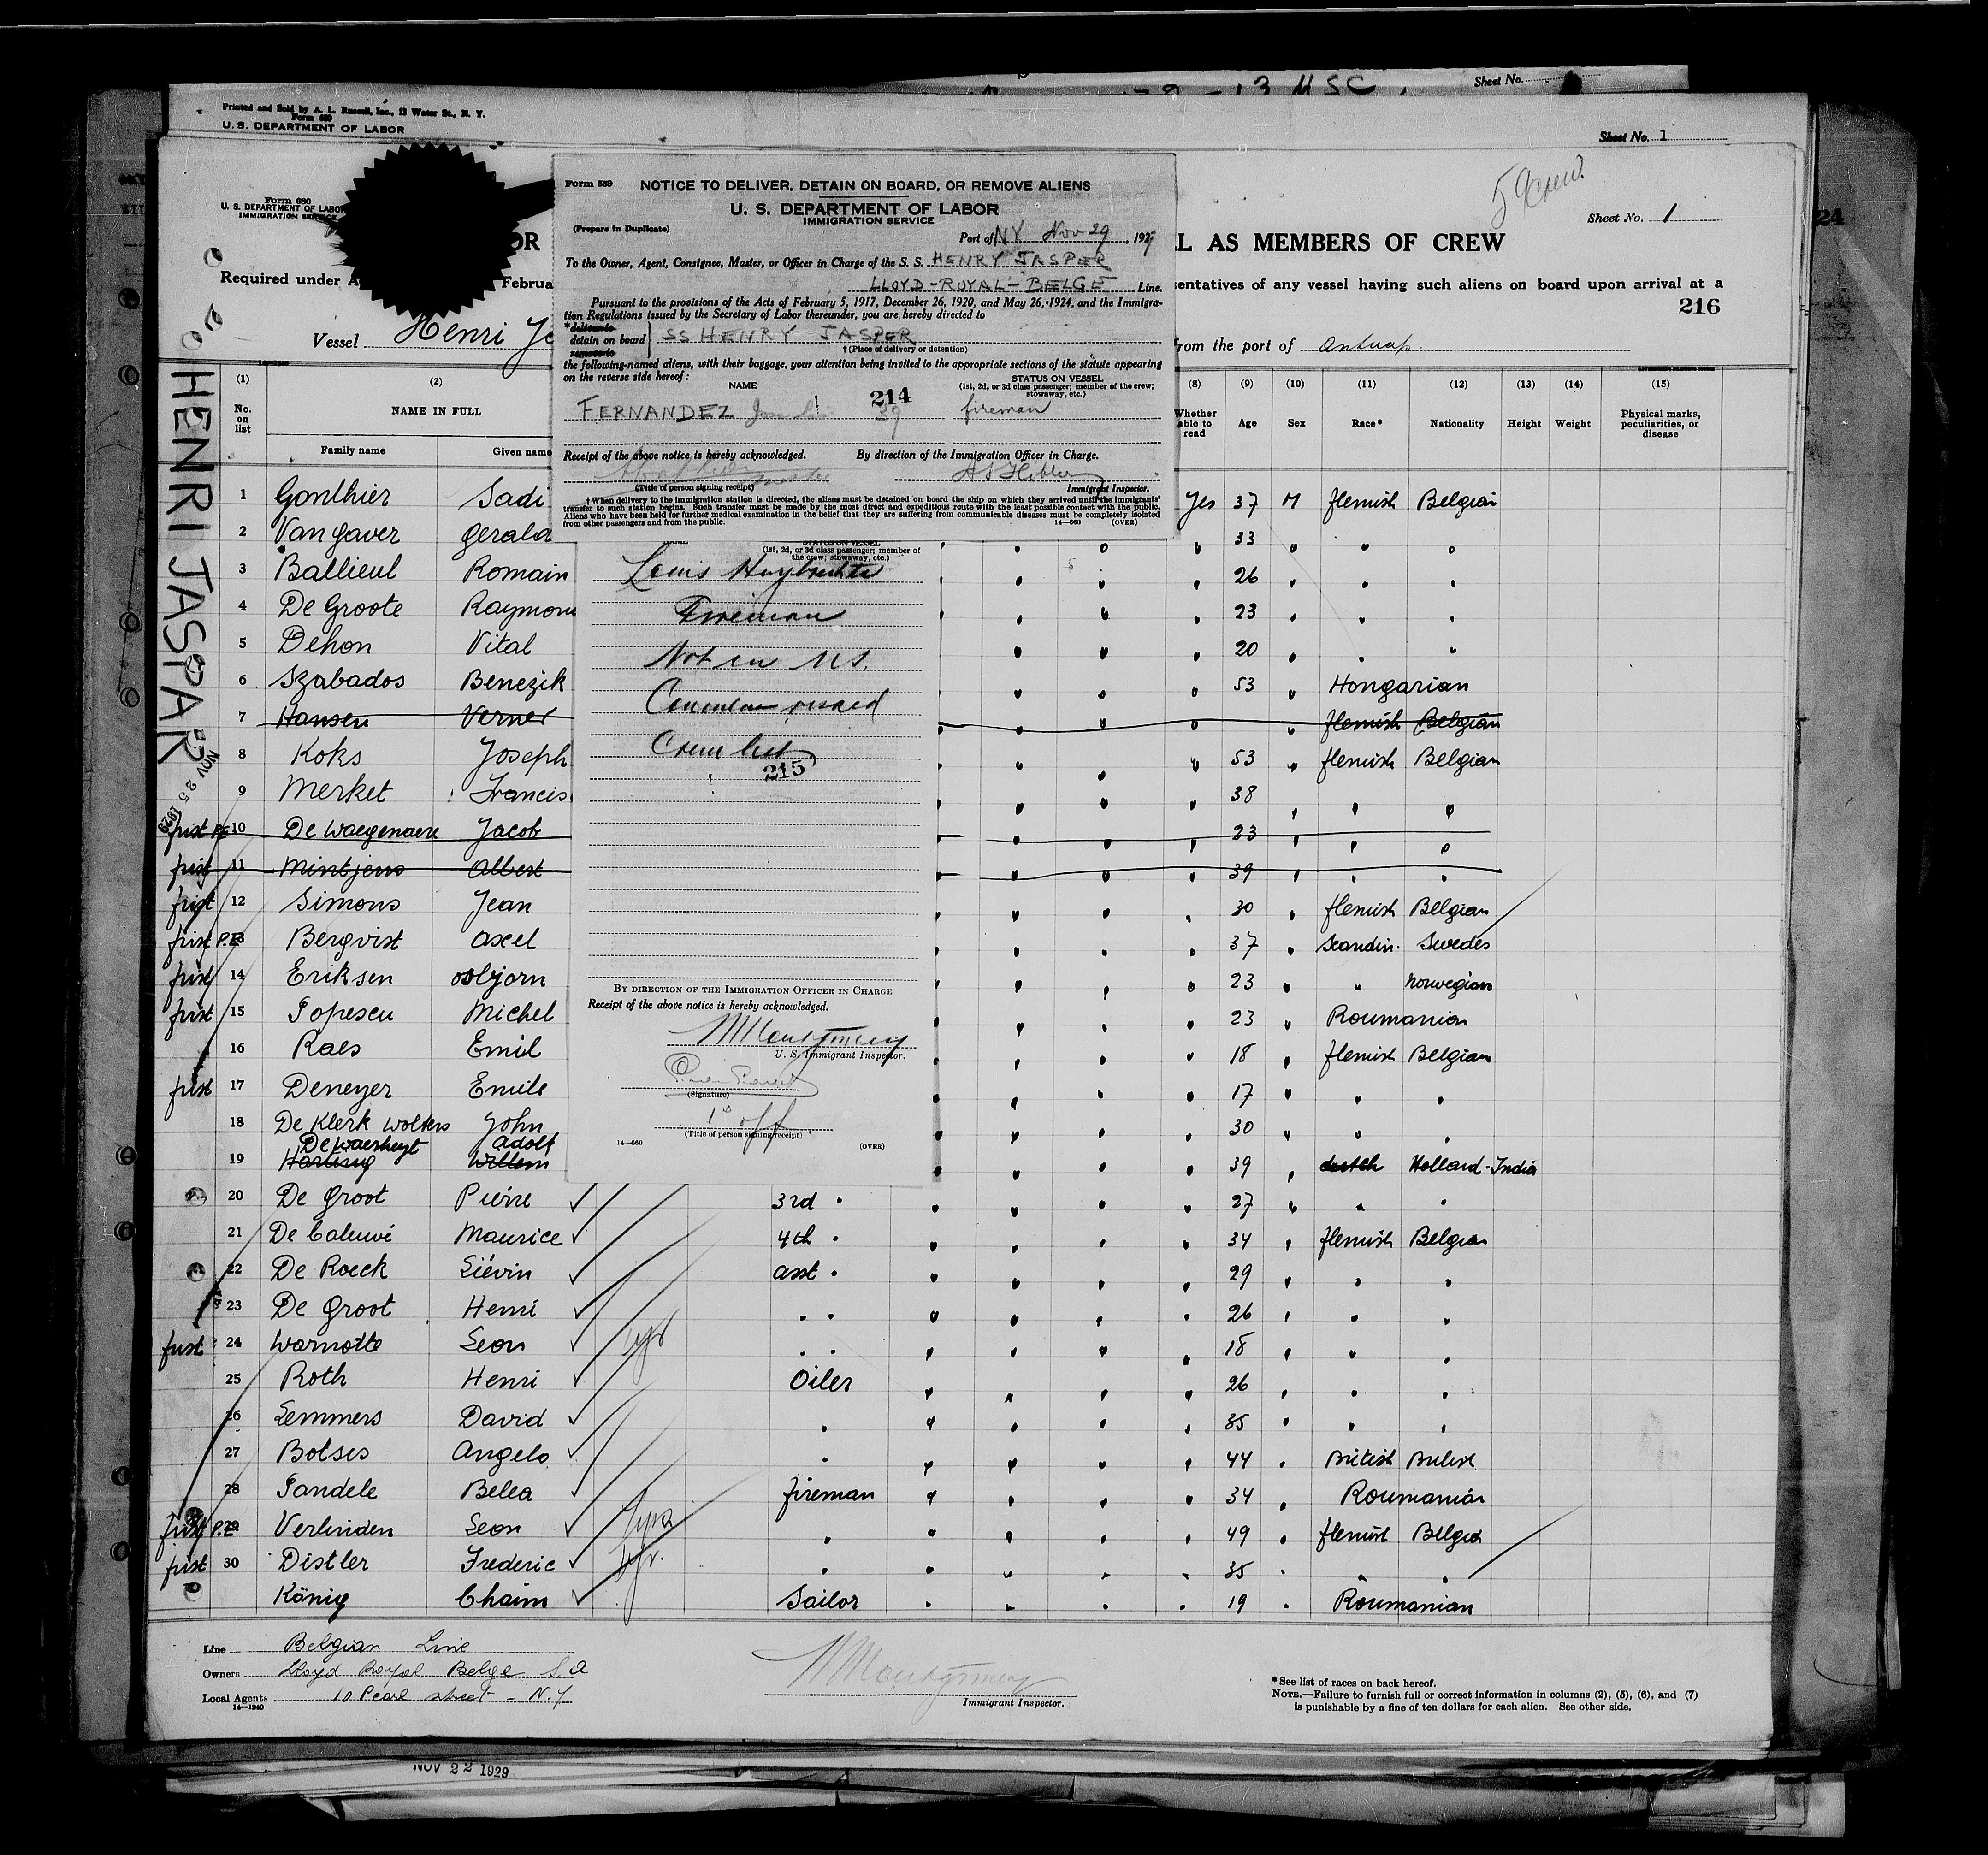 Sheet No.
Printed and Sold by A. L. Russell, Inc., 13 Water St., N. Y.
Form 680
U. S. DEPARTMENT OF LABOR
Sheet No. 1
Form 680
U. S. DEPARTMENT OF LABOR
IMMIGRATION SERVICE
Sheet No. 1
L AS MEMBERS OF CREW
Required under A
Februa
sentatives of any vessel having such aliens on board upon arrival at a
216
Vessel Henri Ja
from the port of Antwerp
HENRI JASPAR
NOV 25 1929
Form 559
NOTICE TO DELIVER, DETAIN ON BOARD, OR REMOVE ALIENS
U. S. DEPARTMENT OF LABOR
IMMIGRATION SERVICE
(Prepare in Duplicate)
Port of NY Nov 29, 1929
To the Owner, Agent, Consignee, Master, or Officer in Charge of the S. S. HENRY JASPER
LLOYD-ROYAL-BELGE Line.
Pursuant to the provisions of the Acts of February 5, 1917, December 26, 1920, and May 26, 1924, and the Immigra-
tion Regulations issued by the Secretary of Labor thereunder, you are hereby directed to
*deliver to
detain on board SS HENRY JASPER
remove to
†(Place of delivery or detention)
the following-named aliens, with their baggage, your attention being invited to the appropriate sections of the statute appearing
on the reverse side hereof:
NAME
STATUS ON VESSEL
(1st, 2d, or 3d class passenger; member of the crew;
stowaway, etc.)
214
FERNANDEZ 39 fireman
Receipt of the above notice is hereby acknowledged.
By direction of the Immigration Officer in Charge.
(Title of person signing receipt)
Immigrant Inspector.
†When delivery to the immigration station is directed, the aliens must be detained on board the ship on which they arrived until the immigrants'
transfer to such station begins. Such transfer must be made by the most direct and expeditious route with the least possible contact with the public.
Aliens who have been held for further medical examination in the belief that they are suffering from communicable diseases must be completely isolated
from other passengers and from the public.
14—660 (OVER)
NAME
STATUS ON VESSEL
(1st, 2d, or 3d class passenger; member of
the crew; stowaway, etc.)
Louis Huybrechts
Fireman
Not on
Crew list
215
BY DIRECTION OF THE IMMIGRATION OFFICER IN CHARGE
Receipt of the above notice is hereby acknowledged.
M Montgomery
U. S. Immigrant Inspector.
(Signature)
1° off
(Title of person signing receipt)
14—660
(OVER)
(1) (2) (8) (9) (10) (11) (12) (13) (14) (15)
No. on list
NAME IN FULL
Family name Given name
Whether able to read
Age Sex Race* Nationality Height Weight
Physical marks, peculiarities, or disease
1 Gonthier Sadi Yes 37 M flemish Belgian
2 Van gaver Gerald 33
3 Ballieul Romain 26
4 De Groote Raymon 23
5 Dehon Vital 20
6 Szabados Benezik 53 Hongarian
7 Hansen Verner flemish Belgian
8 Koks Joseph 53 flemish Belgian
9 Merket Francis 38
first P.E 10 De Waegenaere Jacob 23
first 11 Mintjens Albert 39
first 12 Simons Jean 30 flemish Belgian
first P.E 13 Bergvist Axel 37 Scandin. Swedes
first 14 Eriksen Osbjorn 23 " Norwegian
first 15 Popescu Michel 23 Roumanian
16 Raes Emil 18 flemish Belgian
first 17 Deneyer Emile 17
18 De Klerk Wolters John 30
De Waerheyt Adolf
19 Hartsuy Willem 39 dutch Holland-India
20 De Groot Pierre 3rd 27
21 De Caluwé Maurice 4th 34 flemish Belgian
22 De Roeck Liévin asst 29
23 De Groot Henri 26
first 24 Warnotte Leon 18
25 Roth Henri Oiler 26
26 Lemmers David 35
27 Botses Angelo 44 British
28 Pandele Belea fireman 34 Roumanian
first P.E 29 Verlinden Leon 49 flemish Belgia
first 30 Distler Frederic 35
König Chaim Sailor 19 Roumanian
Line Belgian Line
Owners Lloyd Royal Belge S.A
Local Agents 10 Pearl street - N.Y
14—1240
M Montgomery
Immigrant Inspector.
*See list of races on back hereof.
NOTE.—Failure to furnish full or correct information in columns (2), (5), (6), and (7)
is punishable by a fine of ten dollars for each alien. See other side.
NOV 22 1929
24